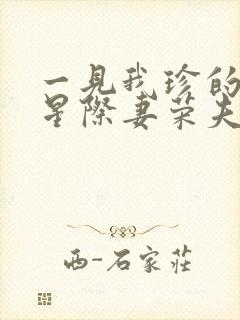 一見我珍的
星際妻荣夫
西-石家莊